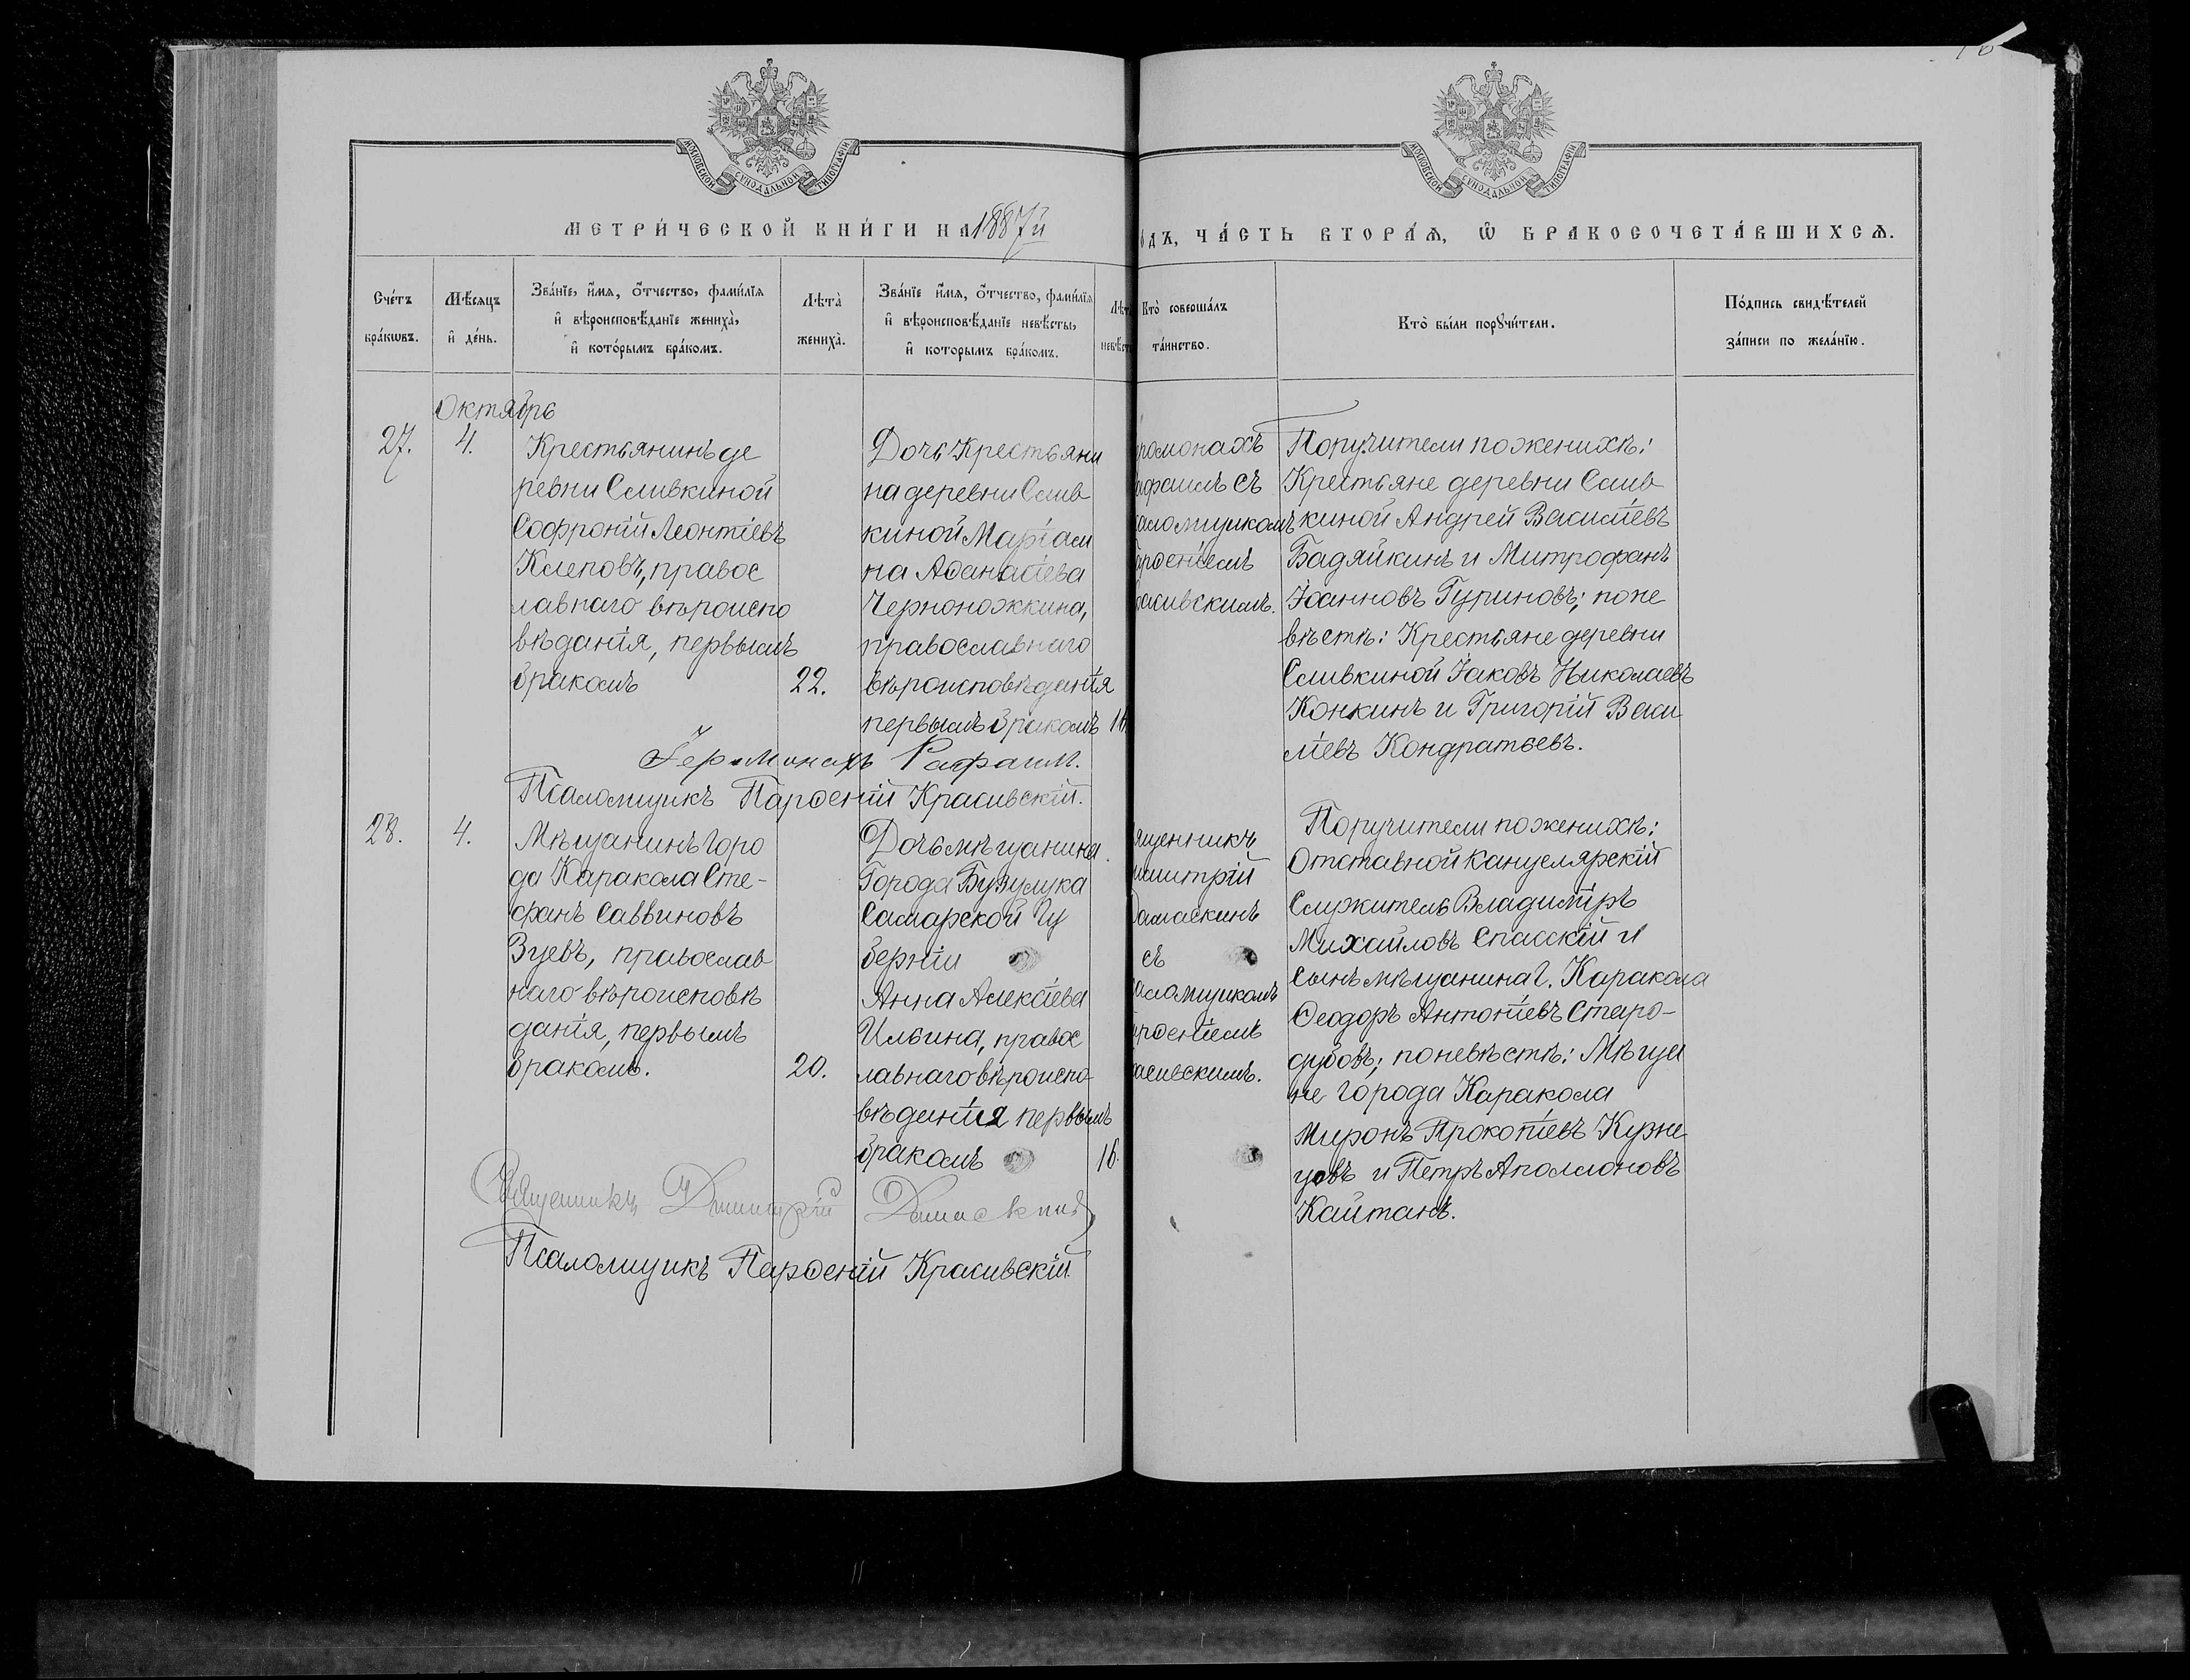 МОСКОВСКОЙ СѴНОДАЛЬНОЙ ТИПОГРАФІИ
МОСКОВСКОЙ СѴНОДАЛЬНОЙ ТИПОГРАФІИ
МЕТРИ́ЧЕСКОЙ КНИ́ГИ НА 1887й
ОДЪ, ЧА́СТЬ ВТОРА́Ѧ, Ѡ҆ БРАКОСОЧЕТА́ВШИХСѦ.
Сче́тъ
бра́кѡвъ.
Мѣ́сяцъ
и҆ де́нь.
Зва́нїе, и҆́мѧ, ѻ҆́тчество, фами́лїѧ
и҆ вѣроисповѣ́данїе жениха̀,
и҆ кото́рымъ бра́комъ.
Лѣта̀
жениха̀.
Зва́нїе и҆́мѧ, ѻ҆́тчество, фами́лїѧ
и҆ вѣроисповѣ́данїе невѣ́сты,
и҆ которымъ бра́комъ.
Лѣта
невѣст
Кто̀ соверша́лъ
та́инство.
Кто̀ бы́ли порꙋчи́тели.
По́дпись свидѣ́телей
за́писи по жела́нїю.
Октябрь
27.
4.
Крестьянинъ де
ревни Сливкиной
Софроній Леонтіевъ
Клеповъ, правос
лавнаго вѣроиспо
вѣданія, первымъ
бракомъ
22.
Дочь Крестьяни
на деревни Слив
киной Маріам
на Аѳанасіева
Черноножкина,
православнаго
вѣроисповѣданія
первымъ бракомъ 16.
ромонахъ
афаилъ съ
саломщикомъ
арѳеніемъ
расивскимъ.
Поручители по женихѣ:
Крестьяне деревни Слив
киной Андрей Василіевъ
Бадяйкинъ и Митрофанъ
Іоанновъ Гуриновъ; поне
вѣстѣ: Крестьяне деревни
Сливкиной Іаковъ Николаевъ
Конкинъ и Григорій Васи
ліевъ Кондратьевъ.
Іеромонахъ Рафаилъ.
Псаломщикъ Парѳеній Красивскій.
28.
4.
Мѣщанинъ горо
да Каракола Сте-
фанъ Саввиновъ
Зуевъ, православ
наго вѣроисповѣ
данія, первымъ
бракомъ.
20.
Дочь мѣщанина
Города Бузулука
Самарской Гу
берніи
Анна Алексіева
Ильина, правос
лавнаго вѣроиспо-
вѣданія первымъ
бракомъ 16.
ященникъ
имитрій
Дамаскинъ
съ
саломщикомъ
арѳеніемъ
расивскимъ.
Поручители по женихѣ:
Отставной канцелярскій
Служитель Владиміръ
Михайловъ Спасскій и
Сынъ мѣщанина г. Каракола
Ѳеодоръ Антоніевъ Старо-
дубовъ; по невѣстѣ: Мѣща
не города Каракола
Миронъ Прокопіевъ Кузне
цовъ и Петръ Аполлоновъ
Кайтанъ.
Священникъ Димитрій Дамаскинъ
Псаломщикъ Парѳеній Красивскій